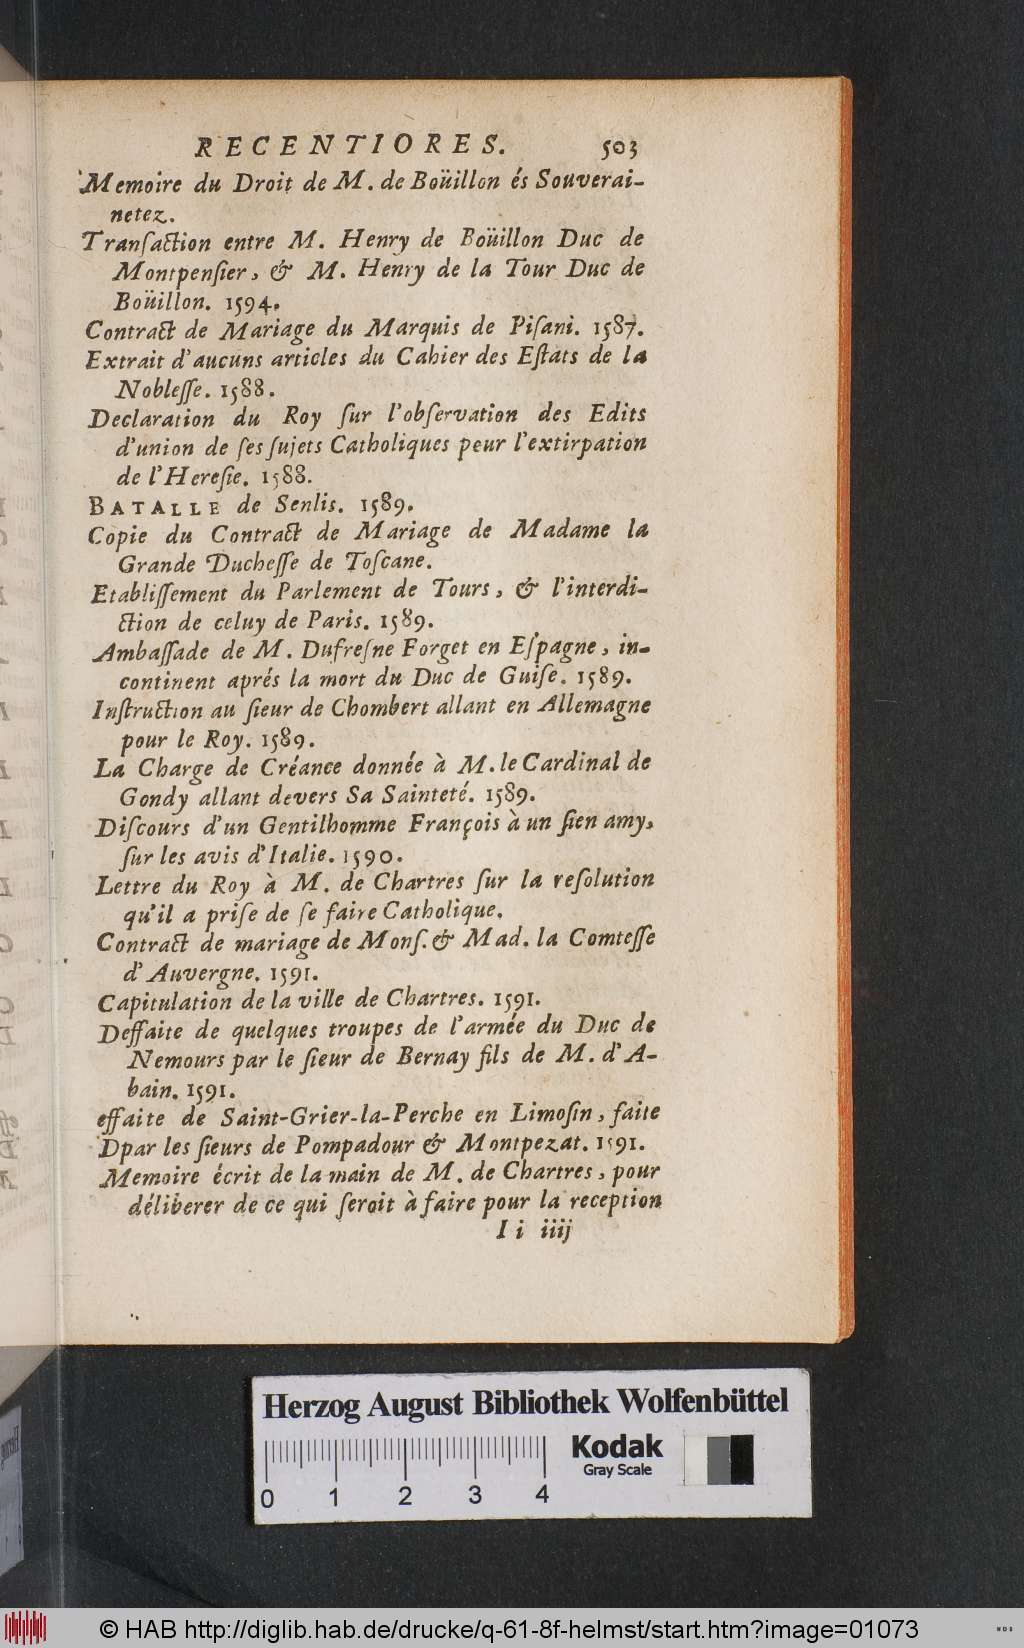 RECENTIORES. 503
Memoire du Droit de M. de Boüillon és Souverai-
netez.
Tranſaction entre M. Henry de Boüillon Duc de
Montpenſier, & M. Henry de la Tour Duc de
Boüillon. 1594.
Contract de Mariage du Marquis de Piſani. 1587.
Extrait d'aucuns articles du Cahier des Eſtats de la
Nobleſſe. 1588.
Declaration du Roy ſur l'obſervation des Edits
d'union de ſes ſujets Catholiques peur l'extirpation
de l'Hereſie. 1588.
BATALLE de Senlis. 1589.
Copie du Contract de Mariage de Madame la
Grande Ducheſſe de Toſcane.
Etabliſſement du Parlement de Tours, & l'interdi-
ction de celuy de Paris. 1589.
Ambaſſade de M. Dufreſne Forget en Eſpagne, in-
continent aprés la mort du Duc de Guiſe. 1589.
Inſtruction au ſieur de Chombert allant en Allemagne
pour le Roy. 1589.
La Charge de Créance donnée à M. le Cardinal de
Gondy allant devers Sa Sainteté. 1589.
Diſcours d'un Gentilhomme François à un ſien amy,
ſur les avis d'Italie. 1590.
Lettre du Roy à M. de Chartres ſur la reſolution
qu'il a priſe de ſe faire Catholique.
Contract de mariage de Monſ. & Mad. la Comteſſe
d'Auvergne. 1591.
Capitulation de la ville de Chartres. 1591.
Deffaite de quelques troupes de l'armée du Duc de
Nemours par le ſieur de Bernay fils de M. d'A-
bain. 1591.
effaite de Saint-Grier-la-Perche en Limoſin, faite
Dpar les ſieurs de Pompadour & Montpezat. 1591.
Memoire écrit de la main de M. de Chartres, pour
déliberer de ce qui ſeroit à faire pour la reception
I i iiij
Herzog August Bibliothek Wolfenbüttel
Kodak
Gray Scale
0 1 2 3 4
© HAB http://diglib.hab.de/drucke/q-61-8f-helmst/start.htm?image=01073